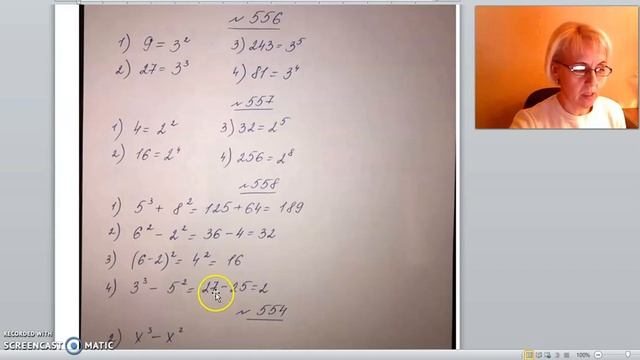 № 556
1) 9 = 3² 3) 243 = 3⁵
2) 27 = 3³ 4) 81 = 3⁴
№ 557
1) 4 = 2² 3) 32 = 2⁵
2) 16 = 2⁴ 4) 256 = 2⁸
№ 558
1) 5³ + 8² = 125 + 64 = 189
2) 6² - 2² = 36 - 4 = 32
3) (6-2)² = 4² = 16
4) 3³ - 5² = 27 - 25 = 2
№ 554
2) x³ - x²
RECORDED WITH
SCREENCAST MATIC
100%